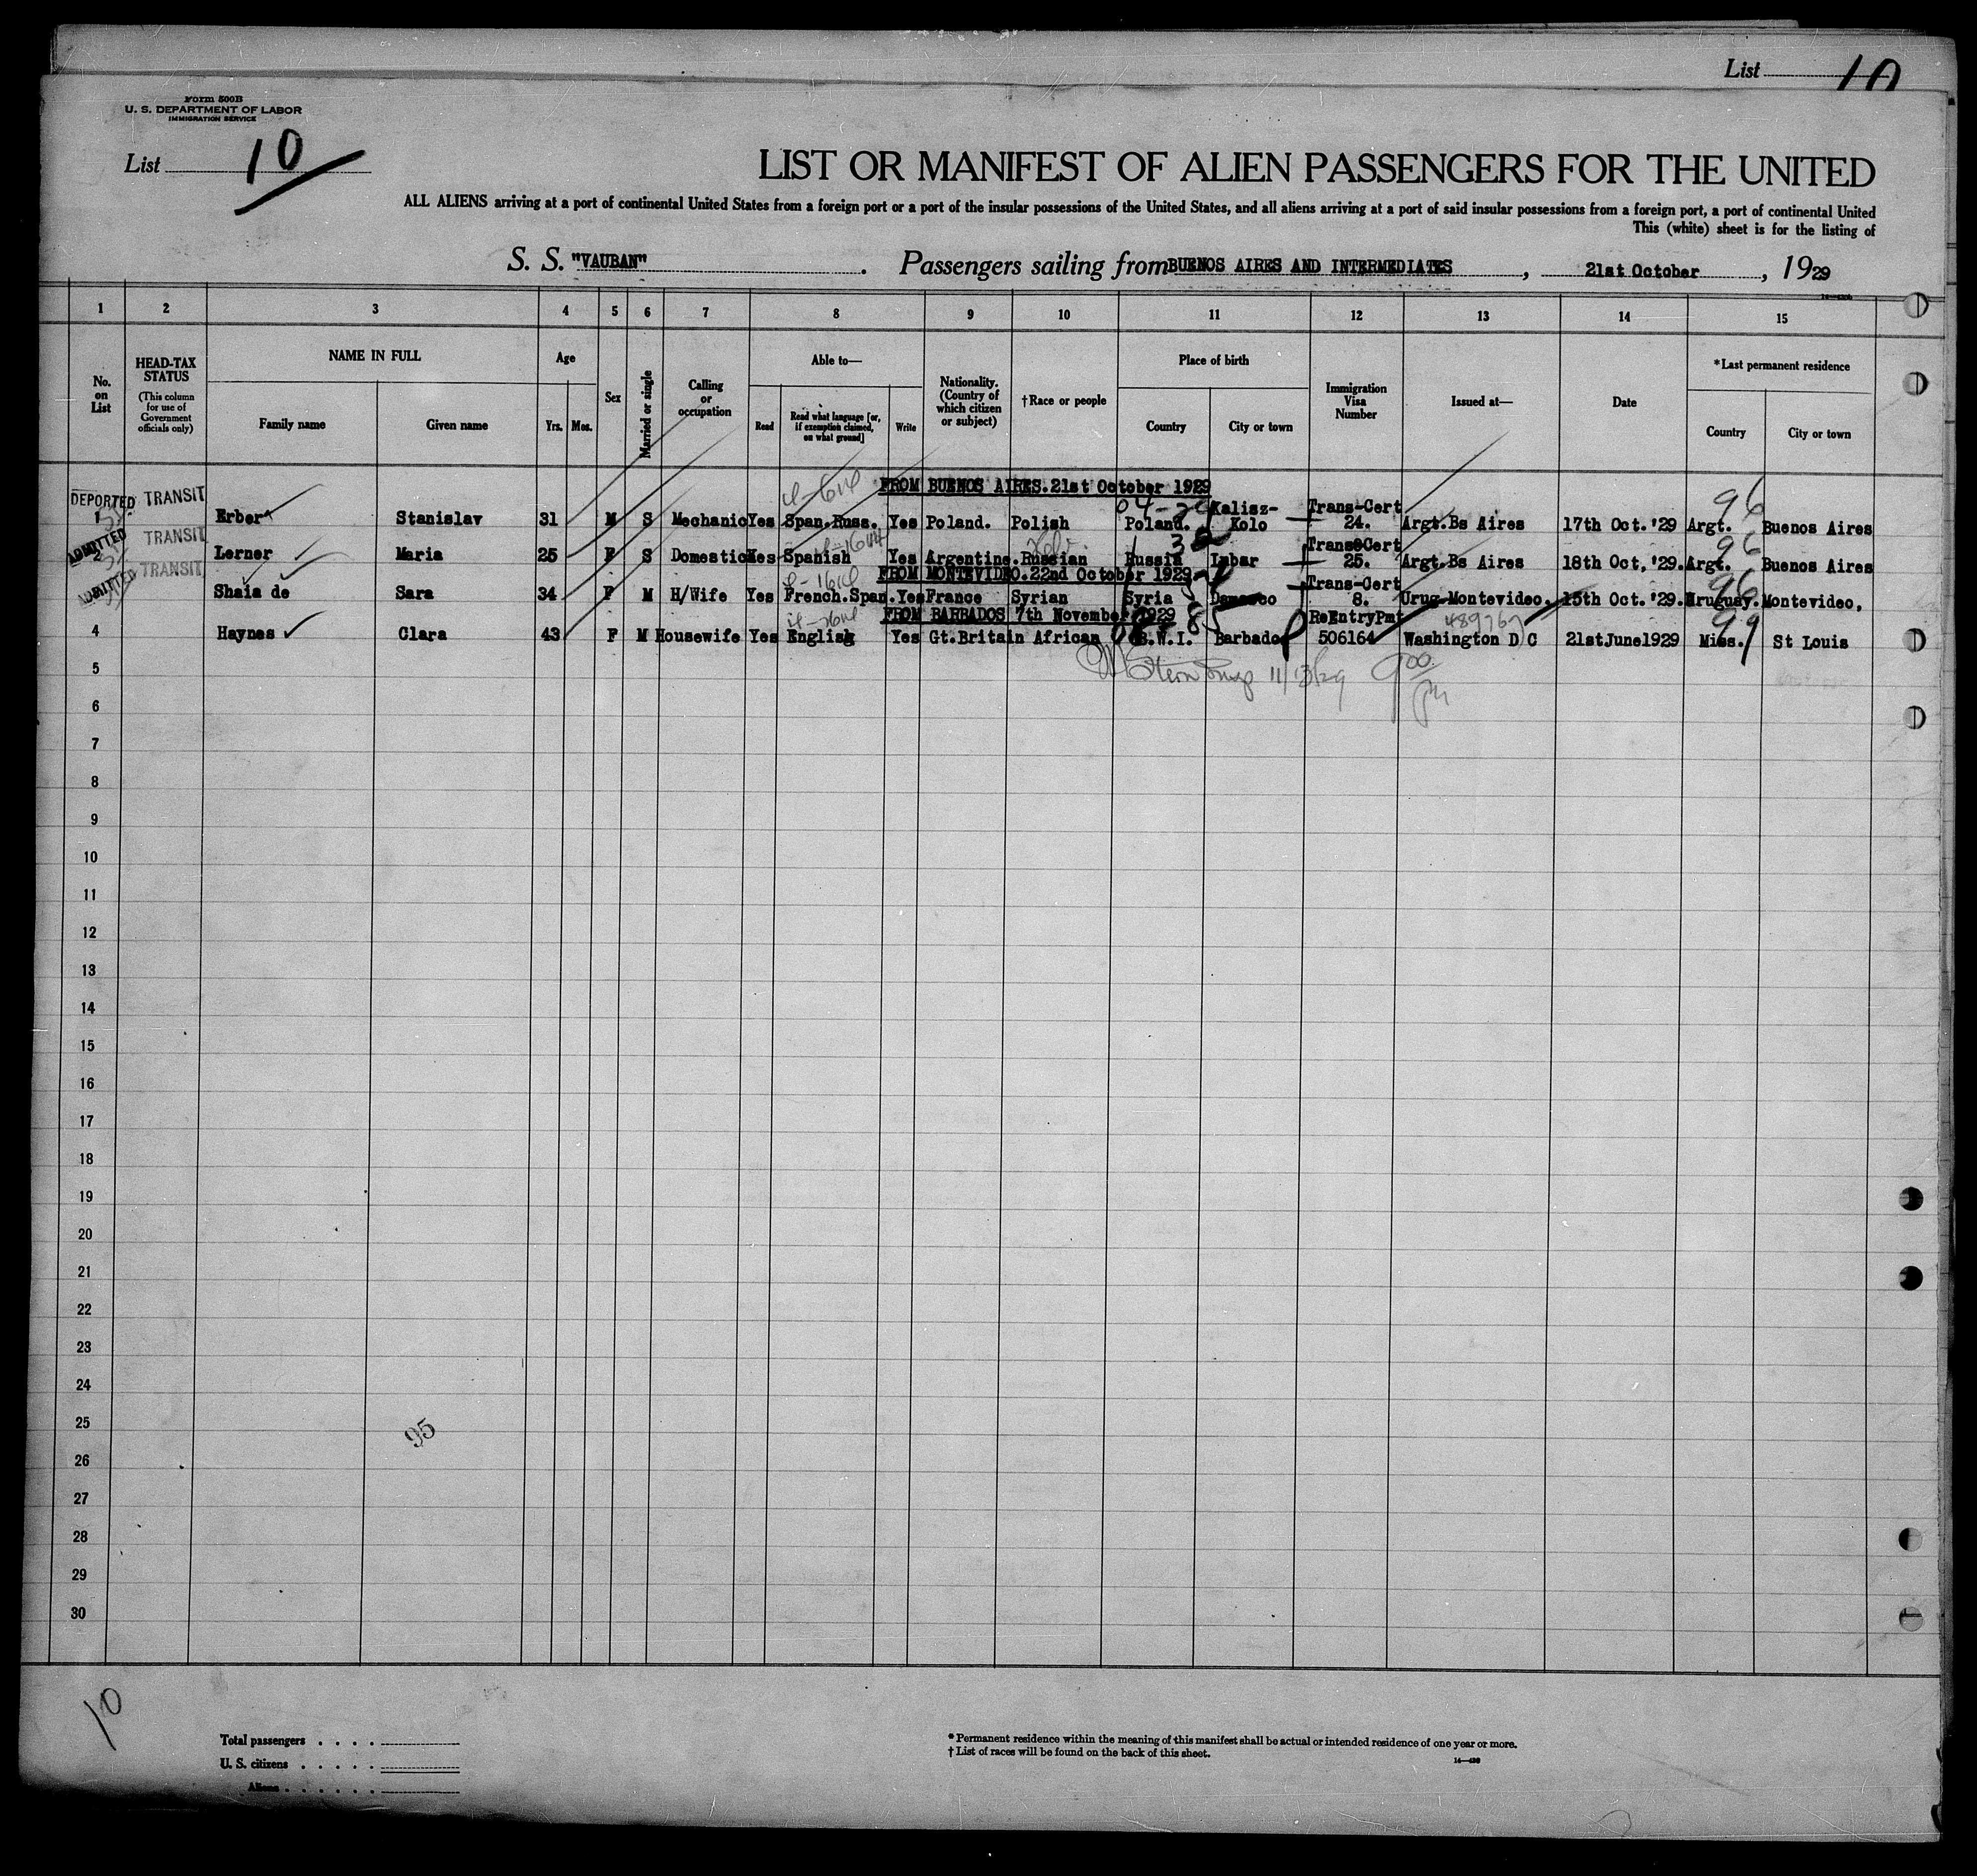 List 10
Form 500B
U. S. DEPARTMENT OF LABOR
IMMIGRATION SERVICE
List 10
LIST OR MANIFEST OF ALIEN PASSENGERS FOR THE UNITED
ALL ALIENS arriving at a port of continental United States from a foreign port or a port of the insular possessions of the United States, and all aliens arriving at a port of said insular possessions from a foreign port, a port of continental United
This (white) sheet is for the listing of
S. S. "VAUBAN" . Passengers sailing from BUENOS AIRES AND INTERMEDIATES , 21st October , 1929
1 2 3 4 5 6 7 8 9 10 11 12 13 14 15
No. on List
HEAD-TAX STATUS
(This column for use of Government officials only)
NAME IN FULL
Family name Given name
Age
Yrs. Mos.
Sex
Married or single
Calling or occupation
Able to—
Read Read what language [or, if exemption claimed, on what ground] Write
Nationality. (Country of which citizen or subject)
†Race or people
Place of birth
Country City or town
Immigration Visa Number
Issued at—
Date
*Last permanent residence
Country City or town
FROM BUENOS AIRES. 21st October 1929
DEPORTED TRANSIT
1 Erber Stanislav 31 M S Mechanic Yes Span.Russ. Yes Poland. Polish Poland. Kalisz-Kolo Trans-Cert 24. Argt.Bs Aires 17th Oct.'29 Argt. Buenos Aires
96
ADMITTED TRANSIT
2 Lerner Maria 25 F S Domestic Yes Spanish Yes Argentine. Russian Russia Izbar Trans-Cert 25. Argt.Bs Aires 18th Oct,'29. Argt. Buenos Aires
96
FROM MONTEVIDEO. 22nd October 1929
ADMITTED TRANSIT
Shaia de Sara 34 F M H/Wife Yes French.Span. Yes France Syrian Syria Damasco Trans-Cert 8. Urug-Montevideo. 15th Oct.'29. Uruguay. Montevideo,
96
FROM BARBADOS 7th November 1929
4 Haynes Clara 43 F M Housewife Yes English Yes Gt.Britain African B.W.I. Barbados ReEntryPmt 506164 Washington D C 21stJune1929 Miss. St Louis
99
489767
5
6
7
8
9
10
11
12
13
14
15
16
17
18
19
20
21
22
23
24
25
26
27
28
29
30
95
10
Total passengers . . . .
U. S. citizens . . . . .
Aliens . . . . . .
* Permanent residence within the meaning of this manifest shall be actual or intended residence of one year or more.
† List of races will be found on the back of this sheet.